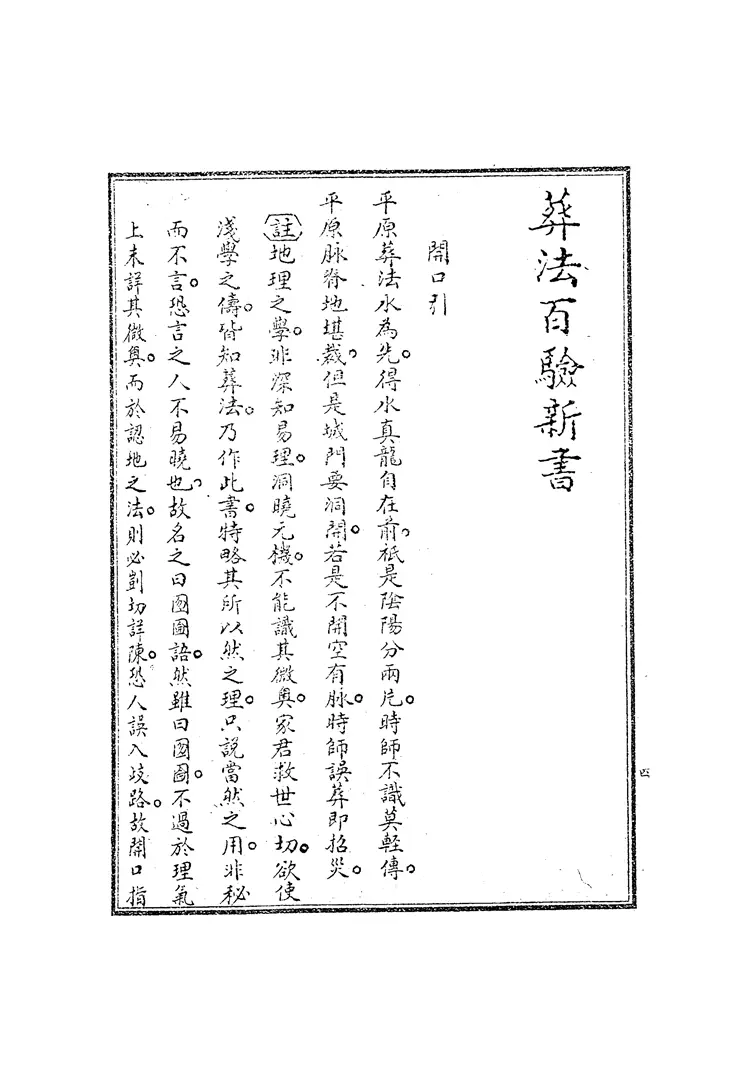 葬法百驗新書
開口引
平原葬法水為先。得水真龍自在前。祇是陰陽分兩片。時師不識莫輕傳。
平原脉脊地堪裁。但是城門要洞開。若是不開空有脉。時師誤葬即招災。
註地理之學。非深知易理。洞曉元機。不能識其微奧。家君救世心切。欲使
淺學之儔。皆知葬法。乃作此書。特略其所以然之理。只說當然之用。非秘
而不言。恐言之人不易曉也。故名之曰囫圇語。然雖曰囫圇。不過於理氣
上未詳其微奧。而於認地之法。則必剴切詳陳。恐人誤入歧路。故開口指
四